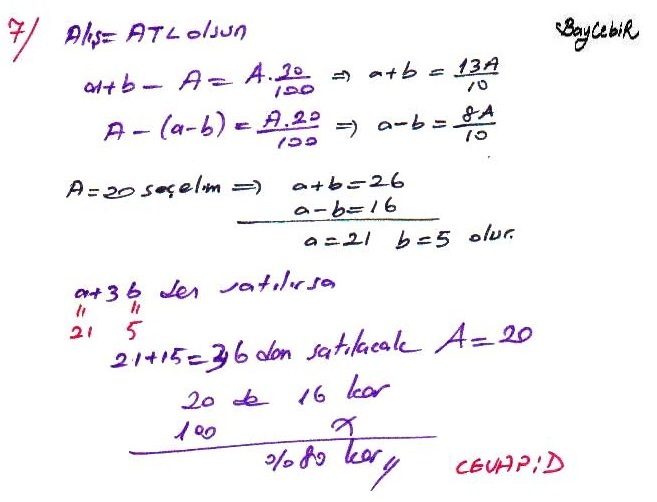 7/ Alış= A TL olsun
BayCebiR
a+b - A = A.30/100 ⇒ a+b = 13A/10
A - (a-b) = A.20/100 ⇒ a-b = 8A/10
A=20 seçelim ⇒ a+b=26
a-b=16
a=21 b=5 olur.
a+3b den satılırsa
21 5
21+15=36 dan satılacak A=20
20 de 16 kar
100 x
%80 kar
CEVAP:D